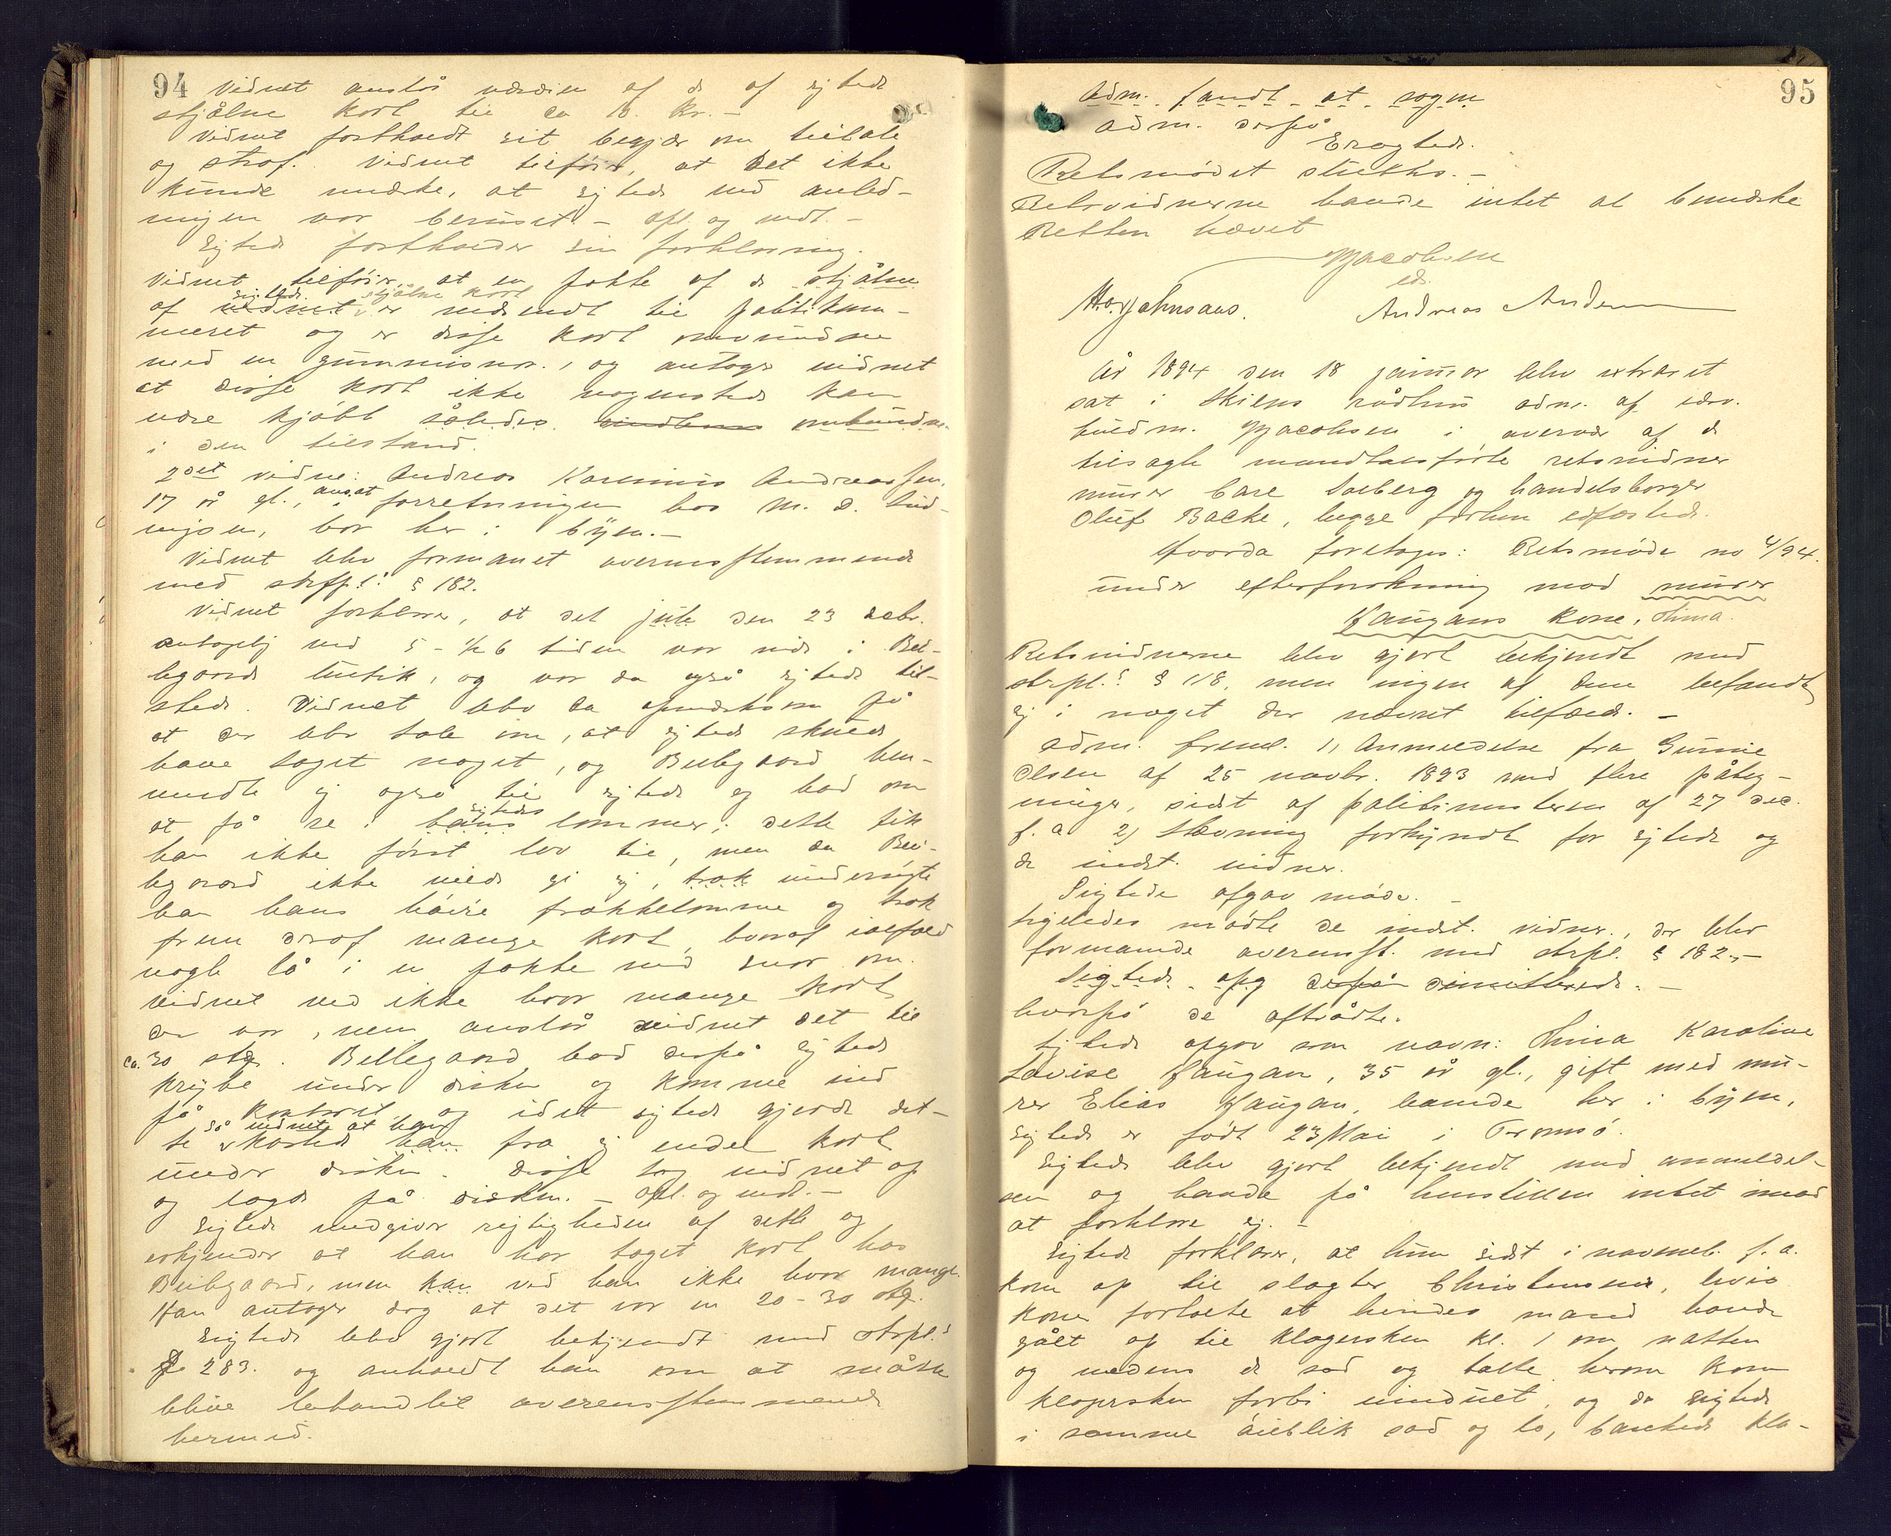 94
Vidnet anslår værdien af de af sigtede
stjålne kort til ca 10 Kr. -
Vidnet fastholdt sit begjær om tiltale
og straf. Vidnet tilføier, at det ikke
kunde mærke, at sigtede ved anled-
ningen var beruset - opl. og vedt. -
Sigtede fastholder sin forklaring.
Vidnet tilføier, at en pakke af de stjålne
af sigtede stjålne kort er nedsendt til politikam-
meret og er disse kort omvundne
med en gummisnor, og antoges vidnet
at disse kort ikke nogensteds kan
være kjøbt således ombundne
i den tilstand.
2det vidne: Andreas Karenius Andreassen,
17 år gl., ansat i forretningen hos M. D. Lud-
vigsen, bor her i byen. -
Vidnet blev formanet overensstemmende
med strfpl.s § 182.
Vidnet forklarer, at det jule den 23 decbr.
antagelig ved 5 - 1/2 6 tiden var inde i Bel-
legaards butik, og var da også sigtede til-
stede. Vidnet blev da opmærksom på
at der blev tale om, at sigtede skulde
have taget noget, og Bellegaard hen-
vendte sig også til sigtede og bad om
at få se i sigtedes lommer; dette fik
han ikke først lov til, men da Bel-
legaard ikke vilde gi sig, trak undersøgte
han hans høire frakkelomme og trak
frem deraf mange kort, hvoraf ialfald
nogle lå i en pakke med snor om.
Vidnet ved ikke hvor mange kort
der var, men anslår vidnet det til
ca. 30 stk. Bellegaard bad derpå sigtede
krybe under disken og komme ind
på kontoret og idet sigtede gjorde det-
te så vidnet at han kastede fra sig endel kort
under disken. Disse tog vidnet op
og lagde på disken. - Opl. og vedt. -
Sigtede medgiver rigtigheden af dette og
erkjender at han har taget kort hos
Bellegaard, men ved han ikke hvor mange.
Han antager dog at det var en 20 - 30 stk.
Sigtede blev gjort bekjendt med strpl.s
§ 283. og anholdt han om at måtte
blive behandlet overensstemmende
hermed.
95
Adm. fandt at sagen
adm. derpå
Eragtede.
Retsmødet sluttes. -
Retsvidnerne havde intet at bemærke
Retten hævet
Jacobsen
eds.
H. Johnsaas. Andreas Andersen
År 1894 den 18 januar blev extraret
sat i Skiens rådhus adm. af edsv.
fuldm. Jacobsen i overvær af de
tilsagte mandtalsførte retsvidner
murer Carl Solberg og handelsborger
Oluf Backe, begge forhen edfæstede.
Hvorda foretoges: Retsmøde no 4/94.
under efterforskning mod murer
Haugans kone, Anna.
Retsvidnerne blev gjort bekjendt med
strpl.s § 118, men ingen af dem befandt
sig i noget der nævnt tilfælde. -
Adm. freml. 1, Anmeldelse fra Gunnil
Olsen af 25 novbr. 1893 med flere påteg-
ninger, sidst af politimesteren af 27 dec.
f. a 2) Stævning forkyndt for sigtede og
de indst. vidner.
Sigtede afgav møde. -
Ligeledes mødte de indst. vidner, der blev
formanede overensst. med strpl. § 182. -
Sigtede opg derpå dimitterede. -
hvorpå de aftrådte.
Sigtede opgav som navn: Anna Karoline
Lovise Haugan, 35 år gl., gift med mu-
rer Elias Haugan, boende her i byen,
Sigtede er født 23 Mai i Tromsø.
Sigtede blev gjort bekjendt med anmeldel-
sen og havde på henstillen intet imod
at forklare sig. -
Sigtede forklarer, at hun sidst i novemb. f. a.
kom op til slagter Christensens, hvis
kone fortalte at hendes mand havde
gået op til klagersken kl. 1 om natten
og medens de sad og talte herom kom
klagersken forbi vinduet, og da sigtede
i samme øieblik sad og lo, bankede kla-